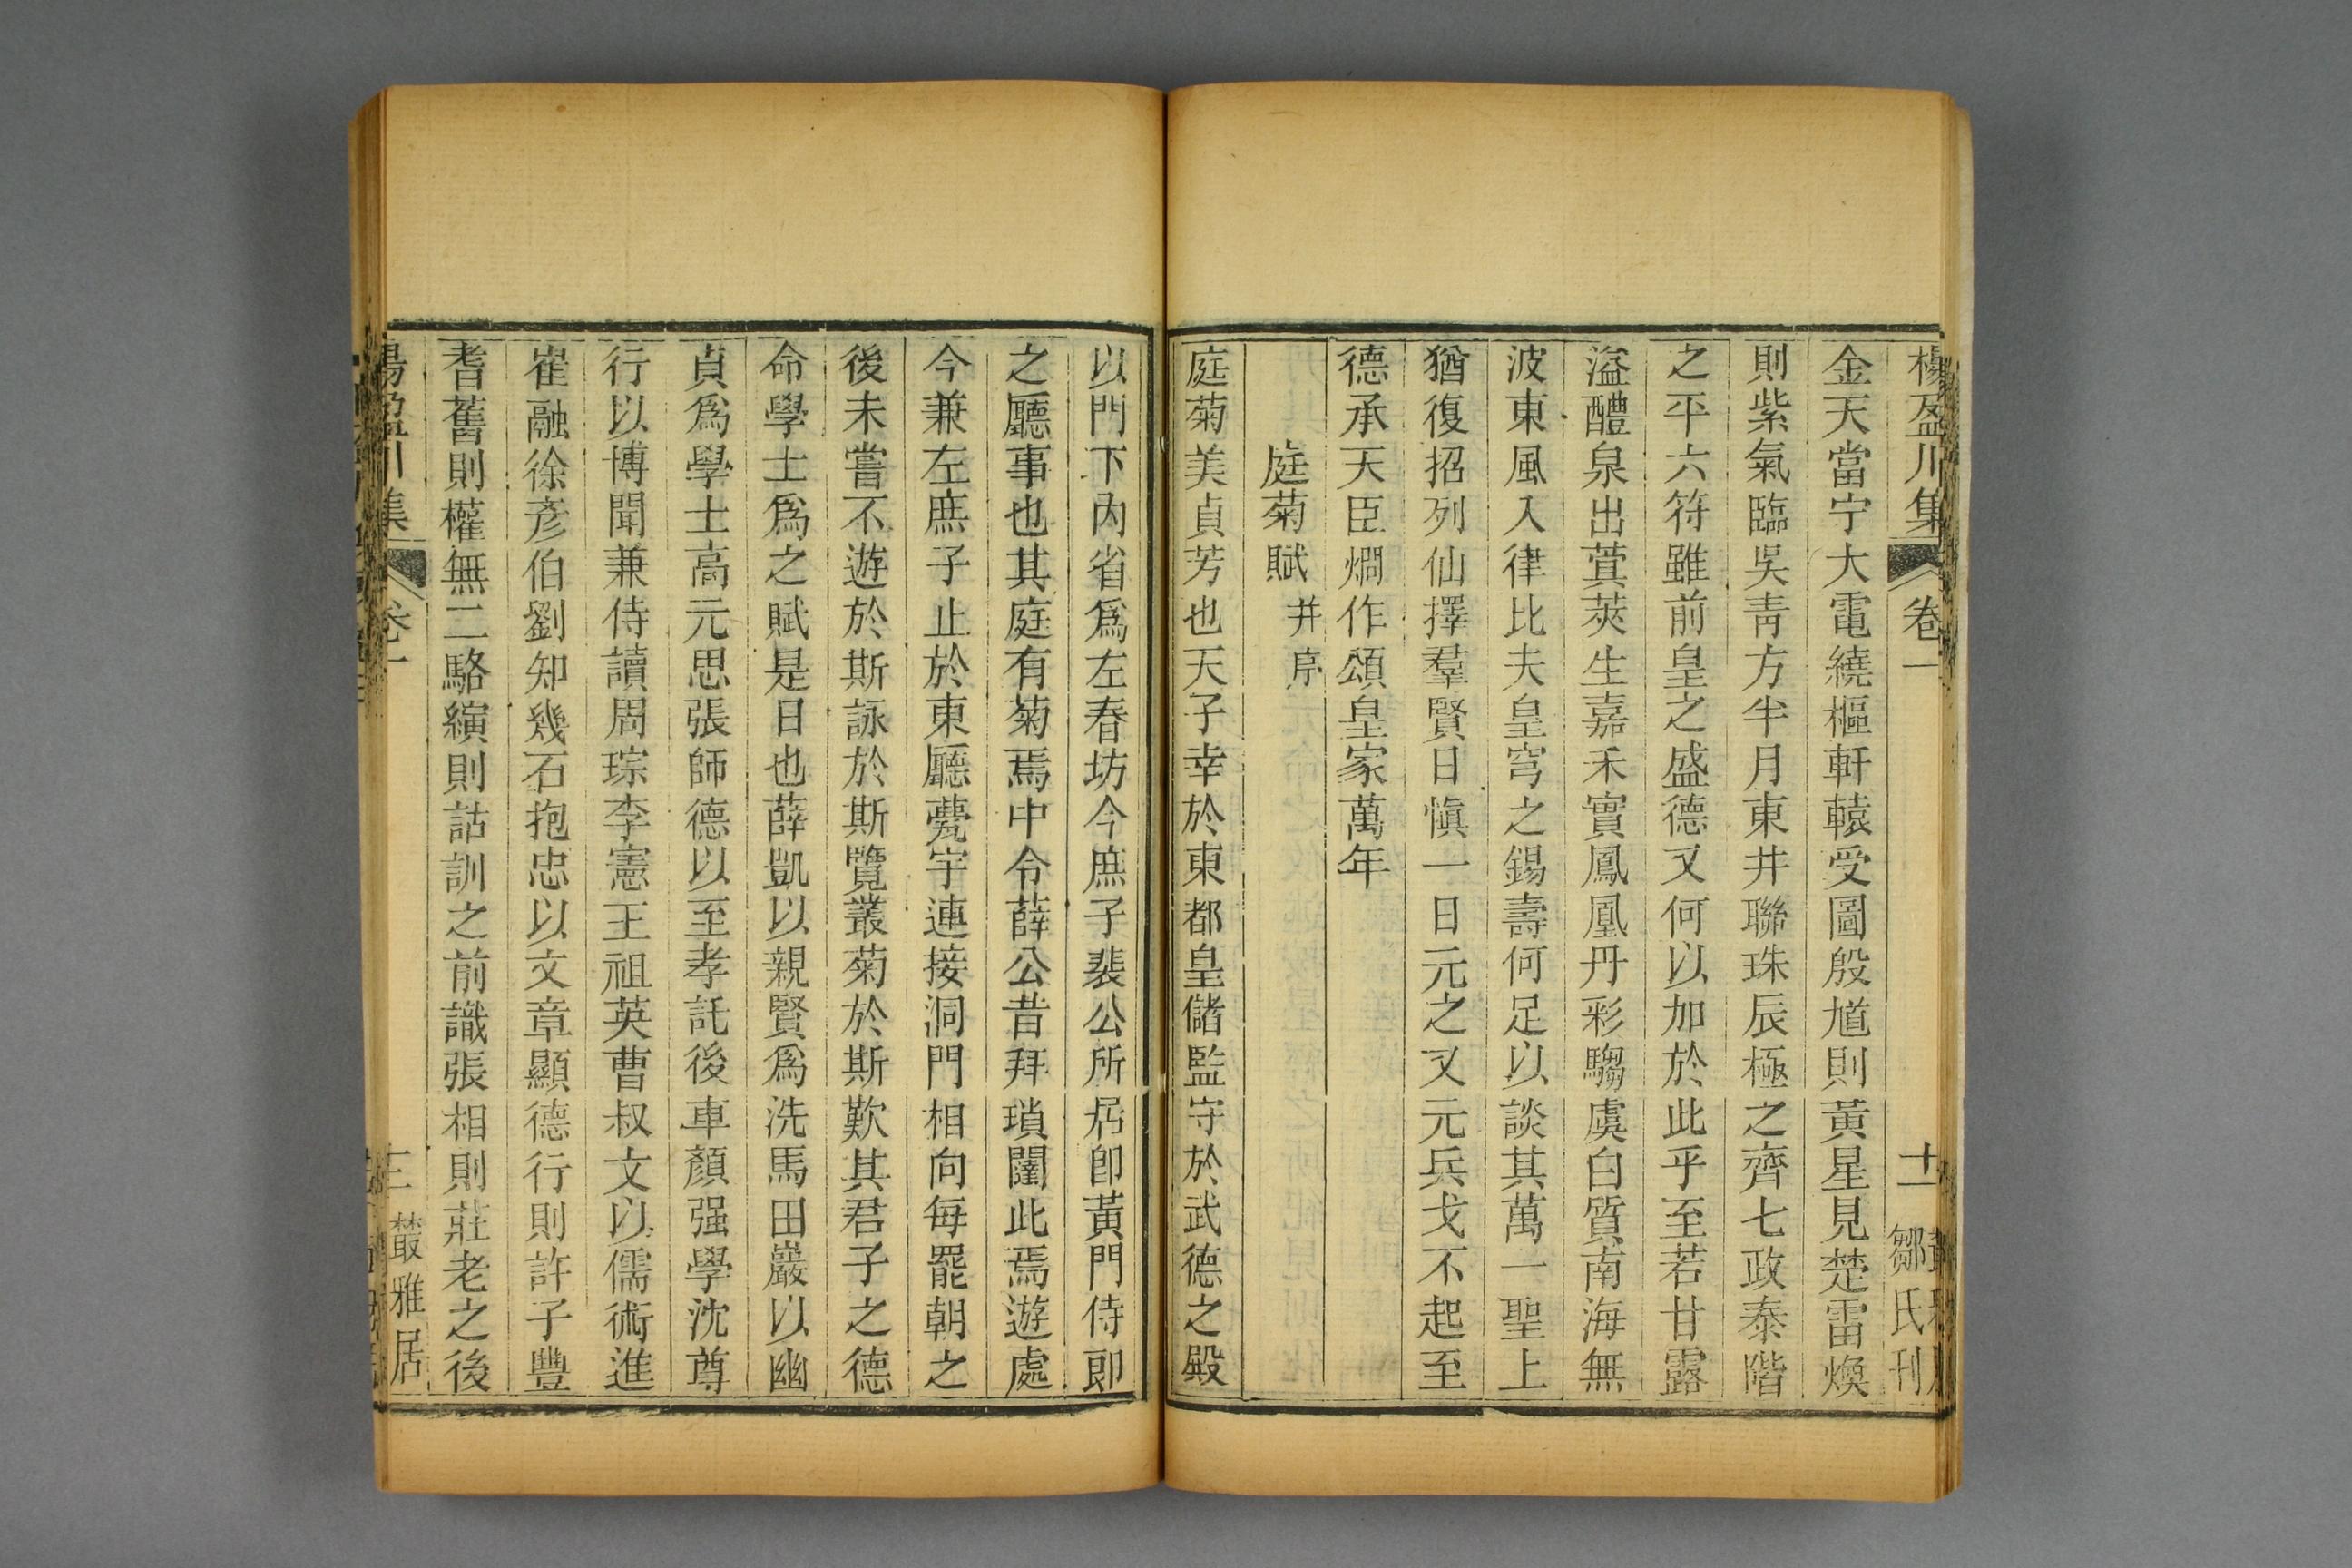 楊盈川集 卷一 十一 鄒氏刊
金天當宁大電繞樞軒轅受圖殷馗則黃星見楚雷煥
則紫氣臨吳靑方半月東井聯珠辰極之齊七政泰階
之平六符雖前皇之盛德又何以加於此乎至若甘露
溢醴泉出蓂莢生嘉禾實鳳凰丹彩騶虞白質南海無
波東風入律比夫皇穹之錫壽何足以談其萬一聖上
猶復招列仙擇羣賢日愼一日元之又元兵戈不起至
德承天臣炯作頌皇家萬年
庭菊賦 幷序
庭菊美貞芳也天子幸於東都皇儲監守於武德之殿
以門下內省爲左春坊今庶子裴公所居卽黃門侍郎
之廳事也其庭有菊焉中令薛公昔拜瑣闈此焉遊處
今兼左庶子止於東廳甍宇連接洞門相向每罷朝之
後未嘗不遊於斯詠於斯覽叢菊於斯歎其君子之德
命學士爲之賦是日也薛凱以親賢爲洗馬田巖以幽
貞爲學士高元思張師德以至孝託後車顏强學沈尊
行以博聞兼侍讀周琮李憲王祖英曹叔文以儒術進
崔融徐彥伯劉知幾石抱忠以文章顯德行則許子豐
耆舊則權無二駱縯則詁訓之前識張相則莊老之後
楊盈川集 卷一 三 叢雅居